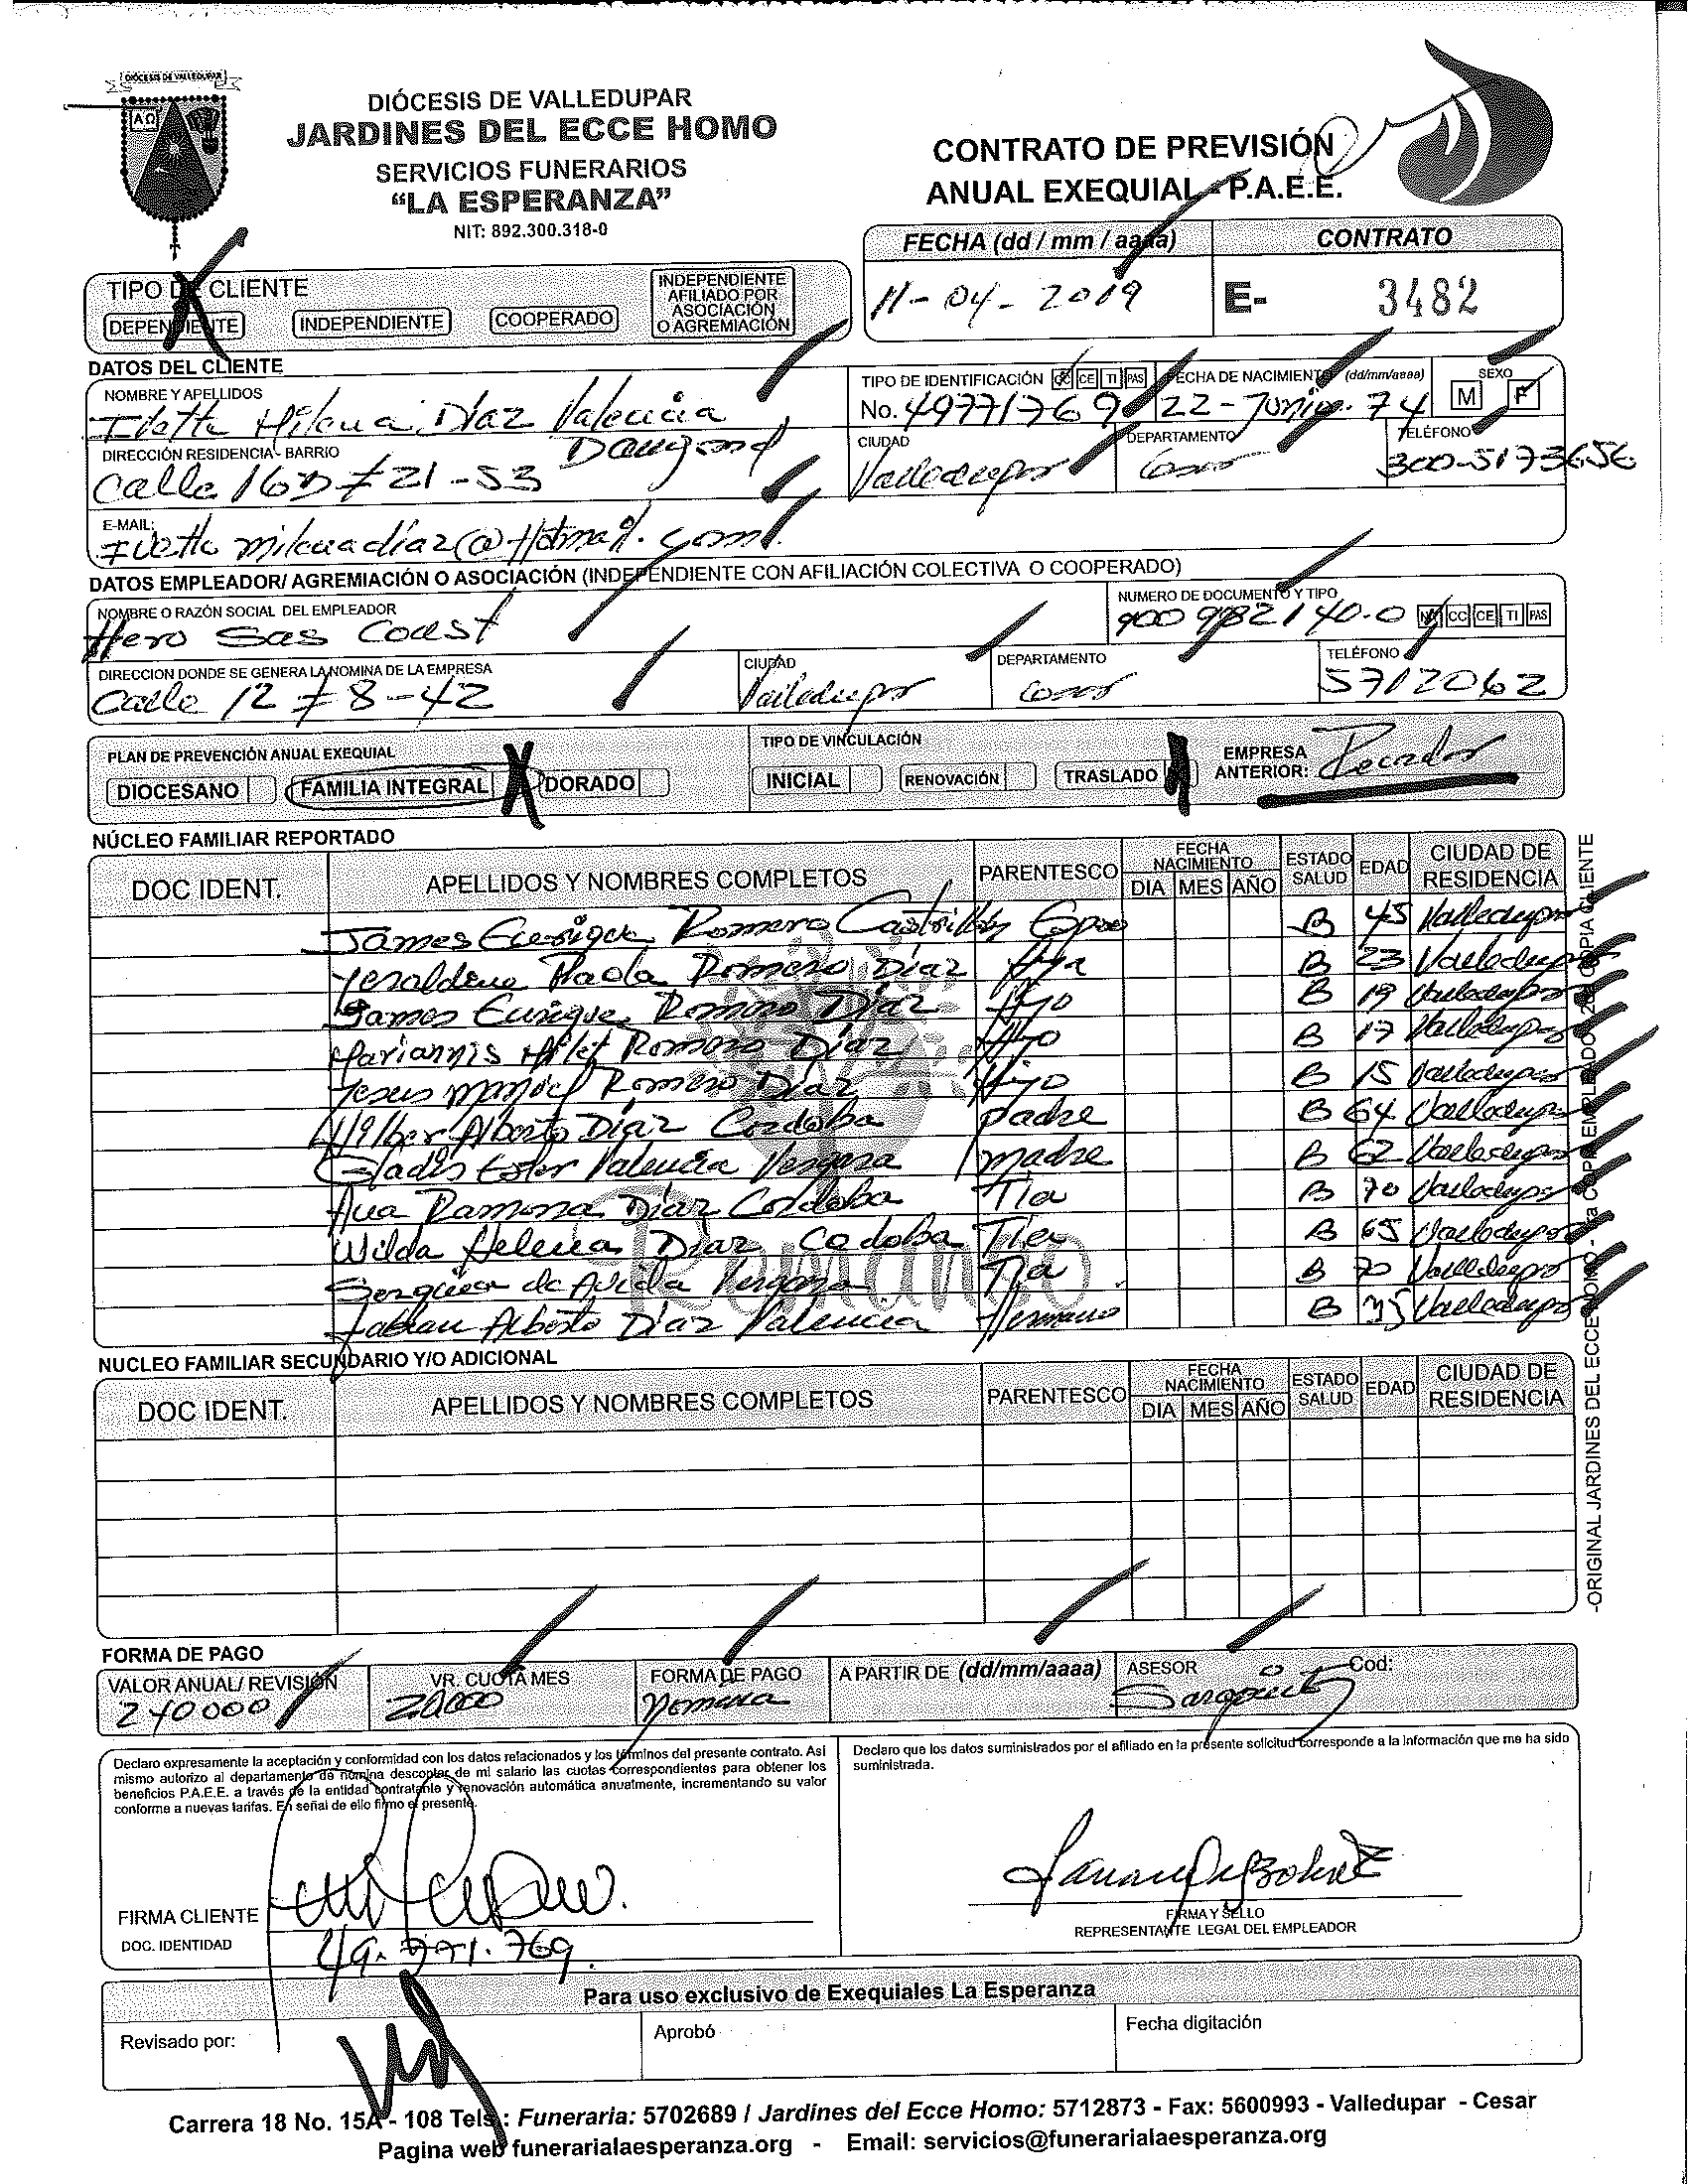 DIÓCESIS DE VALLEDUPAR
DIÓCESIS DE VALLEDUPAR
JARDINES DEL ECCE HOMO
SERVICIOS FUNERARIOS
“LA ESPERANZA”
NIT: 892.300.318-0
CONTRATO DE PREVISIÓN
ANUAL EXEQUIAL - P.A.E.E.
FECHA (dd / mm / aaaa) CONTRATO
11-04-2019 E- 3482
TIPO DE CLIENTE
DEPENDIENTE INDEPENDIENTE COOPERADO INDEPENDIENTE AFILIADO POR ASOCIACIÓN O AGREMIACIÓN
DATOS DEL CLIENTE
NOMBRE Y APELLIDOS TIPO DE IDENTIFICACIÓN CC CE TI PAS FECHA DE NACIMIENTO (dd/mm/aaaa) SEXO
Díaz Valencia No. 49771769 22-Junio-74 M F
DIRECCIÓN RESIDENCIA - BARRIO CIUDAD DEPARTAMENTO TELÉFONO
Calle 16D # 21-53 Valledupar Cesar 300-5173656
E-MAIL:
DATOS EMPLEADOR/ AGREMIACIÓN O ASOCIACIÓN (INDEPENDIENTE CON AFILIACIÓN COLECTIVA O COOPERADO)
NOMBRE O RAZÓN SOCIAL DEL EMPLEADOR NUMERO DE DOCUMENTO Y TIPO
Hero Sas Const 900982140-0 CC CE TI PAS
DIRECCION DONDE SE GENERA LA NOMINA DE LA EMPRESA CIUDAD DEPARTAMENTO TELÉFONO
Calle 12 # 8-42 Valledupar Cesar 5712062
PLAN DE PREVENCIÓN ANUAL EXEQUIAL TIPO DE VINCULACIÓN
DIOCESANO FAMILIA INTEGRAL DORADO INICIAL RENOVACIÓN TRASLADO EMPRESA ANTERIOR: Recordar
NÚCLEO FAMILIAR REPORTADO
DOC IDENT. APELLIDOS Y NOMBRES COMPLETOS PARENTESCO FECHA NACIMIENTO DIA MES AÑO ESTADO SALUD EDAD CIUDAD DE RESIDENCIA
James Enrique Romero Castrillon Esposo B 45 Valledupar
Yeraldine Paola Romero Díaz Hija B 23 Valledupar
James Enrique Romero Díaz Hijo B 19 Valledupar
Mariannis Romero Díaz B 17 Valledupar
Jesus Manuel Romero Díaz Hijo B 15 Valledupar
Alberto Díaz Cordoba padre B 64 Valledupar
Gladis Ester Valencia Vergara madre B 62 Valledupar
Ana Ramona Díaz Cordoba Tía B 70 Valledupar
Wilda Helena Díaz Codoba Tía B 65 Valledupar
de Avila Vergara Tía B 70 Valledupar
Fabian Alberto Díaz Valencia Hermano B 35 Valledupar
Romanao
NUCLEO FAMILIAR SECUNDARIO Y/O ADICIONAL
DOC IDENT. APELLIDOS Y NOMBRES COMPLETOS PARENTESCO FECHA NACIMIENTO DIA MES AÑO ESTADO SALUD EDAD CIUDAD DE RESIDENCIA
FORMA DE PAGO
VALOR ANUAL/ REVISIÓN VR. CUOTA MES FORMA DE PAGO A PARTIR DE (dd/mm/aaaa) ASESOR Cod:
240000 20000 nomina
Declaro expresamente la aceptación y conformidad con los datos relacionados y los términos del presente contrato. Asi
mismo autorizo al departamento de nomina descontar de mi salario las cuotas correspondientes para obtener los
beneficios P.A.E.E. a través de la entidad contratante y renovación automática anualmente, incrementando su valor
conforme a nuevas tarifas. En señal de ello firmo el presente.
Declaro que los datos suministrados por el afiliado en la presente solicitud corresponde a la información que me ha sido
suministrada.
FIRMA CLIENTE
DOC. IDENTIDAD 49.771.769
FIRMA Y SELLO
REPRESENTANTE LEGAL DEL EMPLEADOR
Para uso exclusivo de Exequiales La Esperanza
Revisado por: Aprobó Fecha digitación
Carrera 18 No. 15A - 108 Tels.: Funeraria: 5702689 / Jardines del Ecce Homo: 5712873 - Fax: 5600993 - Valledupar - Cesar
Pagina web funerarialaesperanza.org - Email: servicios@funerarialaesperanza.org